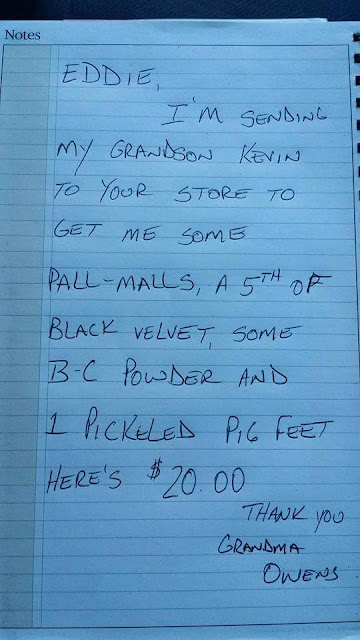 Notes
EDDIE,
I'M SENDING
MY GRANDSON KEVIN
TO YOUR STORE TO
GET ME SOME
PALL-MALLS, A 5TH OF
BLACK VELVET, SOME
B-C POWDER AND
1 PICKELED PIG FEET
HERE'S $20.00
THANK YOU
GRANDMA
OWENS